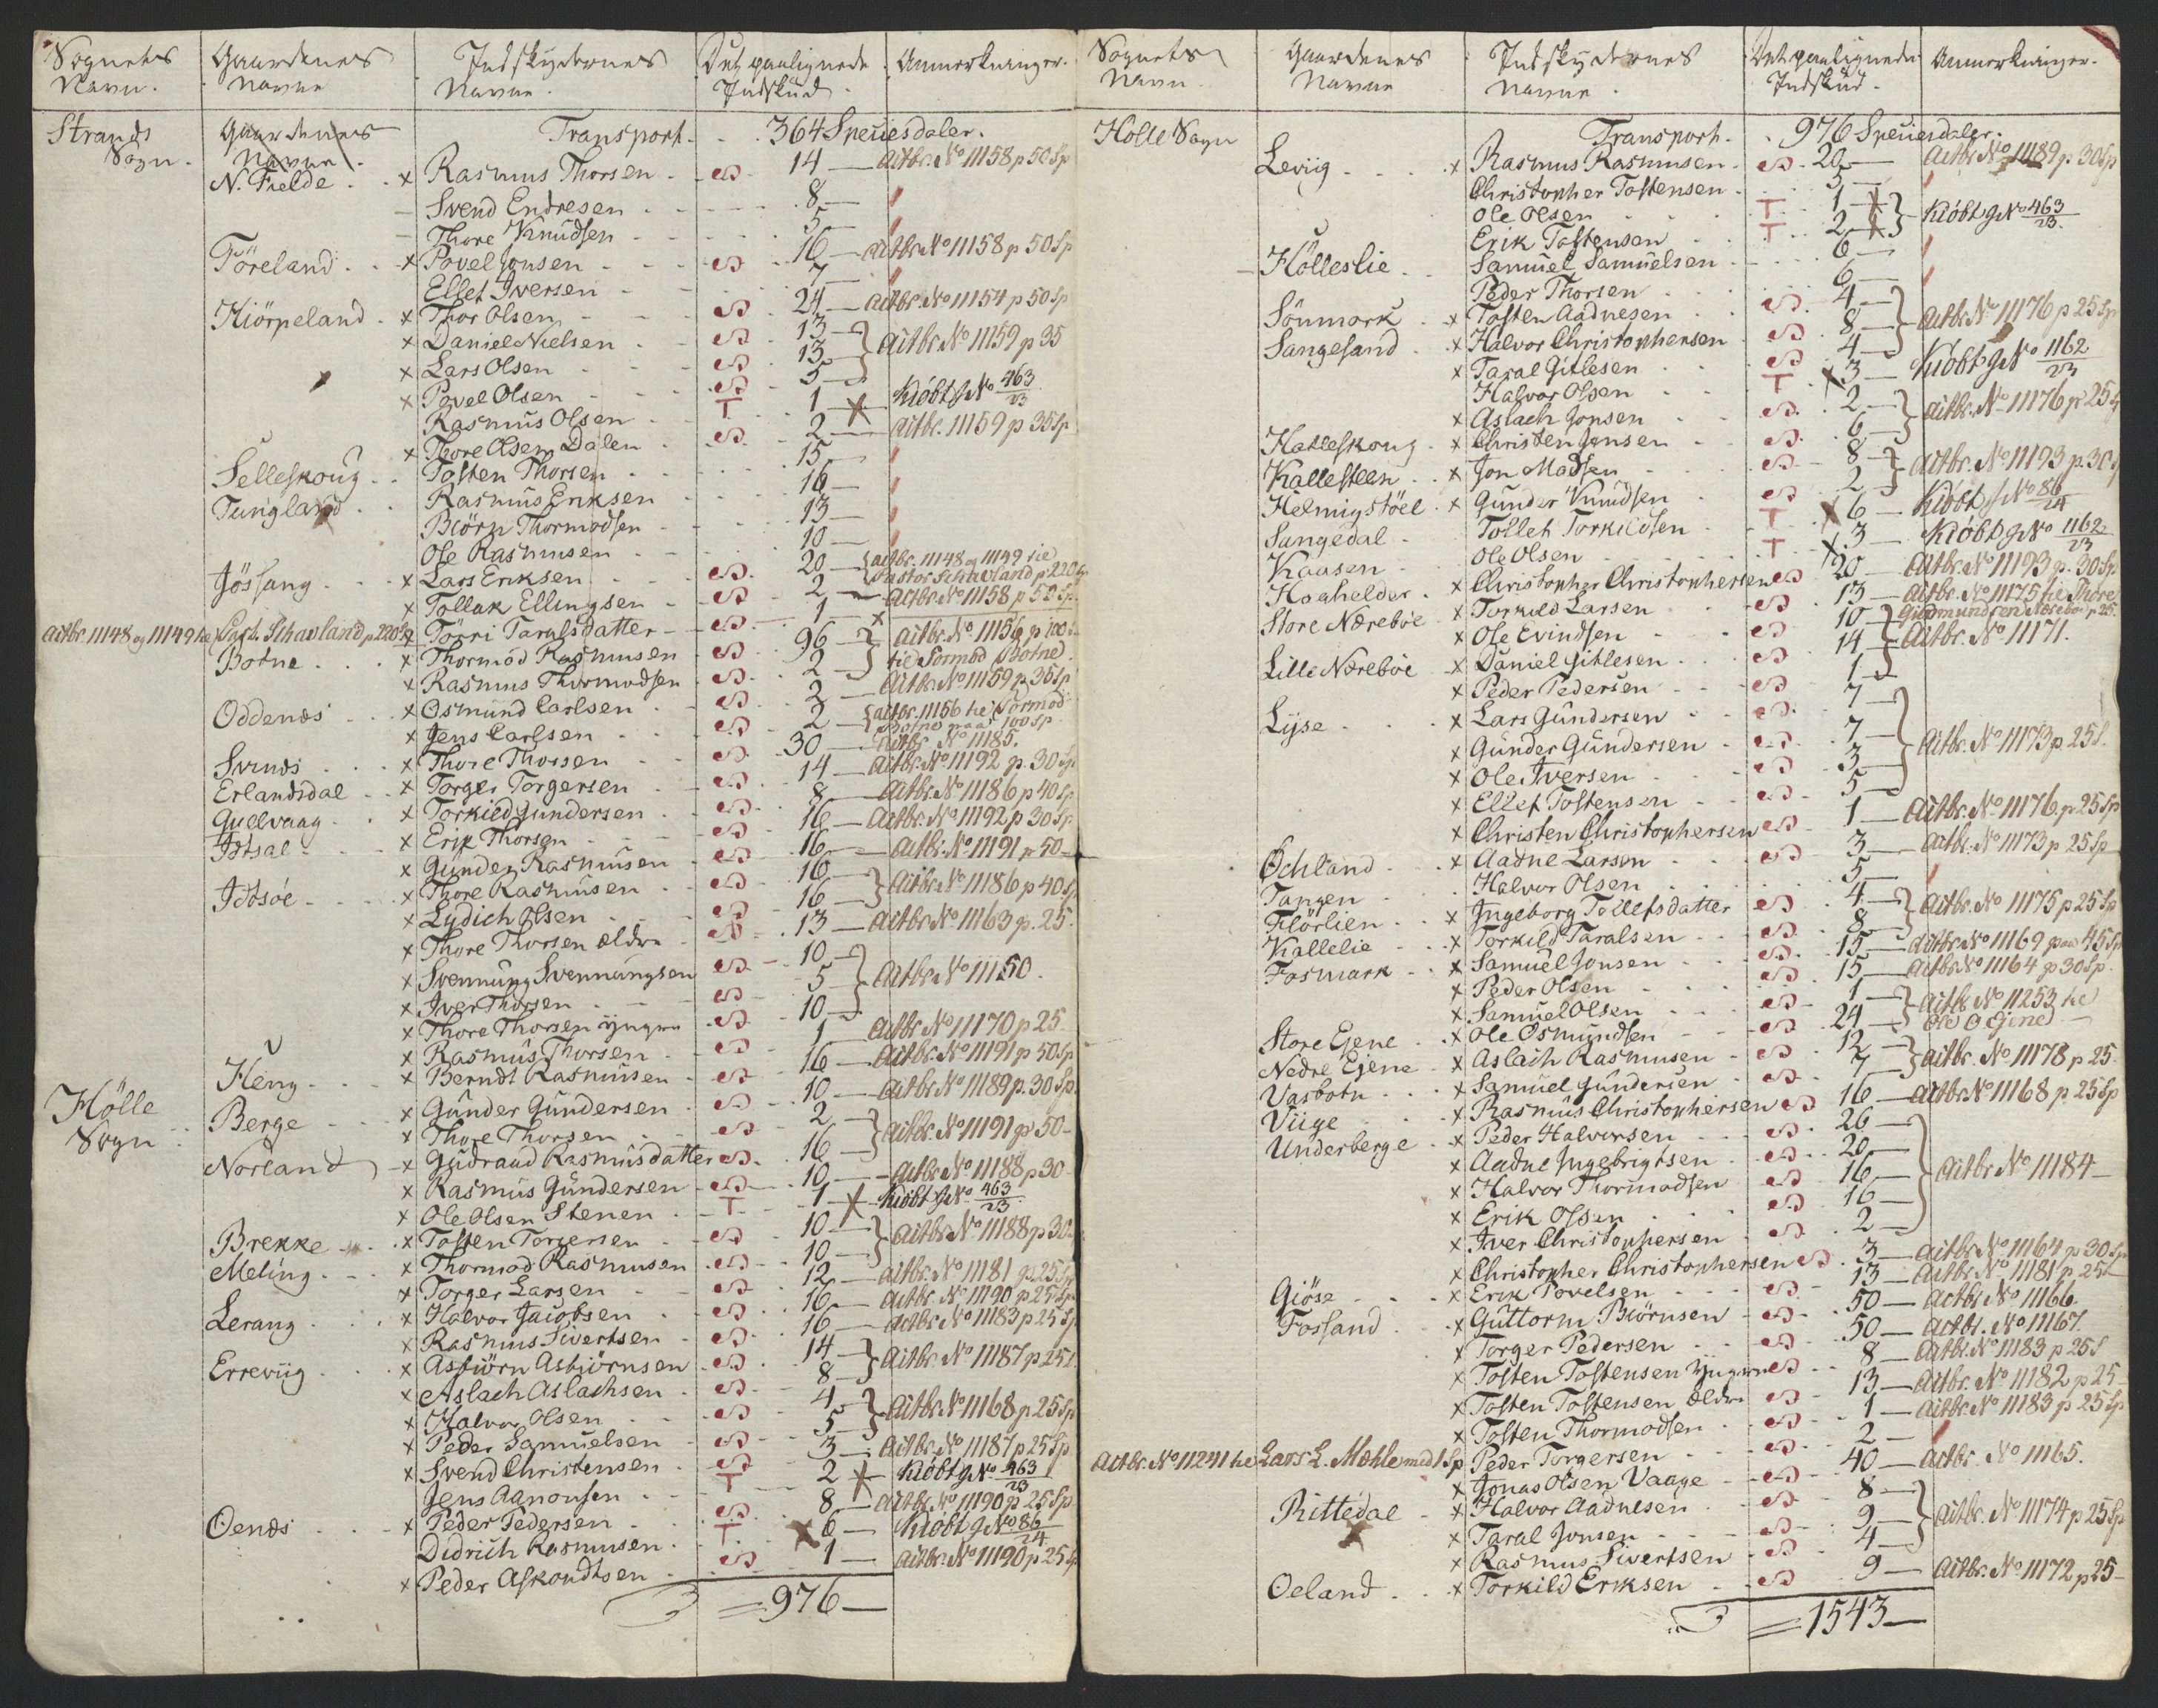 Sognets Navn. Gaardenes Navne Indskydernes Navne. Det paalignede Indskud. Anmerkninger.
Strands Sogn. Gaardenes Navne. Transport. 364 Speciesdaler.
N. Fielde x Rasmus Thorsen 14 Actbr. No 11158 p 50 Sp
Svend Endresen 8
Thore Knudsen 5
Töreland x Povel Jonsen 16 Actbr No 11158 p 50 Sp
Ellef Iversen 7
Kiörpeland x Thor Olsen 24 Actbr No 11154 p 50 Sp
x Daniel Nielsen 13 } Actbr No 11159 p 35
x Lars Olsen 13
x Povel Olsen 5
Rasmus Olsen T 1 x Kiöbt g No 463/23
x Thore Olsen Dalen 2 actbr. 11159 p 35 Sp
Selleskoug Tosten Thorsen 15
Tungland Rasmus Eriksen 16
Biörn Thormodsen 13
Ole Rasmusen 10
Jössang x Lars Eriksen 20 { actbr. 11148 og 11149 til Pastor Schavland p 220
x Tollak Ellingsen 2 Actbr No 11158 p 50 Sp
Actbr 11148 og 11149 til Past. Schavland p 220 Sp x Törri Taralsdatter 1 x
Botne x Thormod Rasmusen 96 } Actbr. No 11156 p 100
x Rasmus Thormodsen 2 til Tormod Botne.
Oddenæs x Osmund Carlsen 2 Actbr No 11159 p 35 Sp
x Jens Carlsen 2 { actbr. 11156 til Tormod Botne paa 100 Sp
Svinæs x Thore Thorsen 30 Actbr No 11185.
Erlandsdal x Torger Torgersen 14 Actbr No 11192 p. 30 Sp
Gudlvaag x Torkild Gundersen 8 Actbr. No 11186 p 40 Sp
Idsal x Erik Thorsen 16 Actbr. No 11192 p 30 Sp
x Gunder Rasmusen 16 Actbr. No 11191 p 50
Idsöe x Thore Rasmusen 16 } Actbr No 11186 p 40 Sp
x Lydich Olsen 16
x Thore Thorsen ældre 13 Actbr No 11163 p. 25
x Svennung Svennungsen 10 } Actbr No 11150.
x Iver Thorsen 5
x Thore Thorsen yngre 10
x Rasmus Thorsen 1 Actbr No 11170 p 25
Heng x Berndt Rasmusen 16 Actbr No 11191 p 50 Sp
Hölle Sogn Berge x Gunder Gundersen 10 Actbr No 11189 p. 30 Sp.
x Thore Thorsen 2 } Actbr. No 11191 p 50
Norland x Gudraud Rasmusdatter 16
x Rasmus Gundersen 10 Actbr No 11188 p 30
x Ole Olsen Stenen T 1 x Kiöbt g No 463/23
Brekke x Tosten Torgersen 10 } Actbr No 11188 p 30
Meling x Thormod Rasmusen 10
x Torger Larsen 12 Actbr. No 11181 p. 25 Sp
Lerang x Halvor Jacobsen 16 Actbr. No 11190 p 25 Sp
x Rasmus Sivertsen 16 Actbr No 11183 p 25 Sp
Erreviig x Asbiörn Asbiörnsen 14 } Actbr. No 11187 p 25
x Aslach Aslachsen 8
x Halvor Olsen 4 } Actbr No 11168 p 25 Sp
x Peder Samuelsen 5
x Svend Christensen 3 Actbr. No 11187 p 25 Sp
Jens Aanonsen T 2 x Kiöbt g No 463/23
Oenæs x Peder Pedersen 8 Actbr No 11190 p 25 Sp
Didrich Rasmusen T x 6 Kiöbt g No 86/24
x Peder Askoudsen 1 Actbr. No 11190 p 25 Sp
= 976
Sognets Navn Gaardenes Navne Indskydernes Navne. Det paalignede Indskud. Anmerkninger.
Holle Sogn Transport. 976 Speciesdaler.
Leviig x Rasmus Rasmusen 20 Actbr No 11189 p. 30 Sp
Christopher Tostensen 5
Ole Olsen T 1 x } Kiöbt g No 463/23
Erik Tostensen T 2 x
Hölleslie Samuel Samuelsen 6
Peder Thorsen 6
Sönmork x Tosten Aadnesen 4 } Actbr. No 11176 p 25 Sp
Sangesand x Halvor Christophersen 8
x Taral Gitlesen 4
Halvor Olsen T x 3 Kiöbt g No 1162/23
x Aslach Jonsen 2 } Actbr. No 11176 p 25 Sp
Hatleskoug x Christen Jensen 6
Kallesteen x Jon Madsen 8 } Actbr. No 11193 p. 30 Sp
Helmigstöel x Gunder Knudsen 2
Sangedal Tollef Torkildsen T x 6 Kiöbt g No 86/24
Kaasen Ole Olsen T x 3 Kiöbt g No 1162/23
Hoghelder x Christopher Christophersen 20 Actbr. No 11193 p. 30 Sp.
Store Næreböe x Torkild Larsen 13 Actbr. No 11175 til Thore Gudmundsen Nærebö p 25.
x Ole Evindsen 10 } Actbr. No 11171.
Lille Næreböe x Daniel Gitlesen 14
x Peder Pedersen 1
Lyse x Lars Gundersen 7 } Actbr. No 11173 p 25 S.
x Gunder Gundersen 7
x Ole Iversen 3
x Ellef Tostensen 5
x Christen Christophersen 1 Actbr. No 11176. p. 25 Sp
Ochland x Aadne Larsen 3 Actbr. No 11173 p 25 Sp
Tangen Halvor Olsen 5
Flörlien x Ingeborg Tollefsdatter 4 } Actbr. No 11175 p 25 Sp
Kallelie x Torkild Taralsen 8
Fosmark x Samuel Jonsen 15 Actbr. No 11169 paa 45 Sp
x Peder Olsen 15 Actbr No 11164 p 30 Sp.
x Samuel Olsen 1 } Actbr No 11253 til
Store Ejene x Ole Osmundsen 24 Ole O Ejene
Nedre Ejene x Aslach Rasmusen 12 } Actbr. No 11178 p 25
Vasbotn x Samuel Gundersen 7
Viige x Rasmus Christophersen 16 Actbr No 11168 p. 25 Sp
Underberge x Peder Halvorsen 26 } Actbr No 11184
x Aadne Ingebrigtsen 20
x Halvor Thormodsen 16
x Erik Olsen 16
x Iver Christophersen 2
x Christopher Christophersen 3 Actbr No 11164 p 30 Sp
Giöse x Erik Povelsen 13 Actbr. No 11181 p. 25
Fossand x Guttorm Biörnsen 50 Actbr No 11166.
x Torger Pedersen 50 Actbr. No 11167.
x Tosten Tostensen yngre 8 Actbr. No 11183 p 25 S
x Tosten Tostensen ældre 13 Actbr. No 11182 p 25
x Tosten Thormodsen 1 Actbr No 11183 p 25 Sp
Actbr. No 11241 til Lars L. Mæhle med 1 Sp Peder Torgersen 2
x Jonas Olsen Vaage 40 Actbr. No 11165.
Rittedal x Halvor Aadnesen 8 } Actbr. No 11174 p 25 Sp
x Taral Jonsen 9
x Rasmus Sivertsen 4
Oeland x Torkild Eriksen 9 Actbr. No 11172 p 25
= 1543